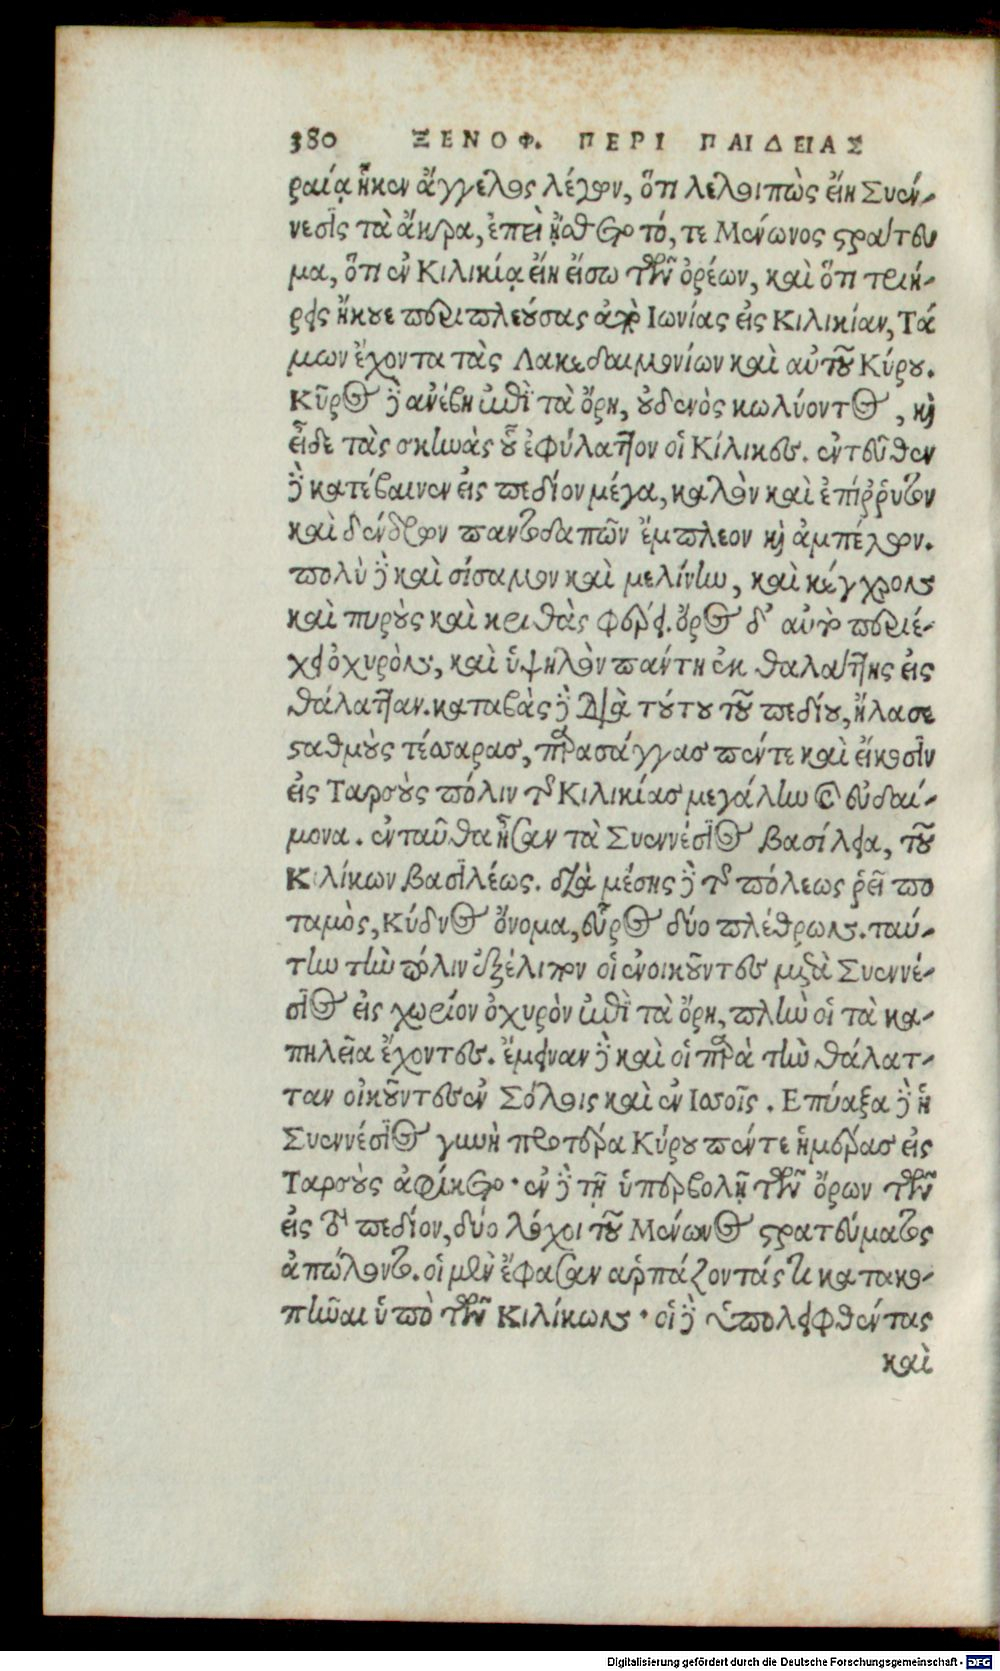 380 ΞΕΝΟΦ. ΠΕΡΙ ΠΑΙΔΕΙΑΣ
ραίᾳ ἧκεν ἄγγελος λέγων, ὅτι λελοιπὼς εἴη Συέν-
νεσις τὰ ἄκρα, ἐπεὶ ᾔσθετο τό, τε Μένωνος στράτευ
μα, ὅτι ἐν Κιλικίᾳ εἴη εἴσω τῶν ὀρέων, καὶ ὅτι τριή-
ρεις ἤκουε περιπλεούσας ἀπὸ Ἰωνίας εἰς Κιλικίαν, Τά
μων ἔχοντα τὰς Λακεδαιμονίων καὶ αὐτοῦ Κύρου.
Κῦρος δὲ ἀνέβη ἐπὶ τὰ ὄρη, οὐδενὸς κωλύοντος, καὶ
εἶδε τὰς σκηνὰς οὗ ἐφύλαττον οἱ Κίλικες. ἐντεῦθεν
δὲ κατέβαινεν εἰς πεδίον μέγα, καλὸν καὶ ἐπίῤῥυτον
καὶ δένδρων παντοδαπῶν ἔμπλεον καὶ ἀμπέλων.
πολὺ δὲ καὶ σίσαμον καὶ μελίνην, καὶ κέγχρον
καὶ πυροὺς καὶ κριθὰς φέρει. ὄρος δ' αὐτὸ περιέ-
χει ὀχυρὸν, καὶ ὑψηλὸν πάντη ἐκ θαλάττης εἰς
θάλατταν. καταβὰς δὲ διὰ τούτου τοῦ πεδίου, ἤλασε
σταθμοὺς τέσσαρας, παρασάγγας πέντε καὶ εἴκοσιν
εἰς Ταρσοὺς πόλιν τῆς Κιλικίας μεγάλην καὶ εὐδαί-
μονα. ἐνταῦθα ἦσαν τὰ Συεννέσιος βασίλεια, τοῦ
Κιλίκων βασιλέως. διὰ μέσης δὲ τῆς πόλεως ῥεῖ πο
ταμὸς, Κύδνος ὄνομα, εὖρος δύο πλέθρων. ταύ-
την τὴν πόλιν ἐξέλιπον οἱ ἐνοικοῦντες μετὰ Συεννέ-
σιος εἰς χωρίον ὀχυρὸν ἐπὶ τὰ ὄρη, πλὴν οἱ τὰ κα-
πηλεῖα ἔχοντες. ἔμειναν δὲ καὶ οἱ παρὰ τὴν θάλατ-
ταν οἰκοῦντες ἐν Σόλοις καὶ ἐν Ἰσσοῖς. Ἐπύαξα δὲ ἡ
Συεννέσιος γυνὴ προτέρα Κύρου πέντε ἡμέρας εἰς
Ταρσοὺς ἀφίκετο· ἐν δὲ τῇ ὑπερβολῇ τῶν ὄρων τῶν
εἰς τὸ πεδίον, δύο λόχοι τοῦ Μένωνος στρατεύματος
ἀπώλοντο. οἱ μὲν ἔφασαν ἁρπάζοντάς τι κατακο-
πῆναι ὑπὸ τῶν Κιλίκων· οἱ δὲ ὑπολειφθέντας
καὶ
Digitalisierung gefördert durch die Deutsche Forschungsgemeinschaft - DFG